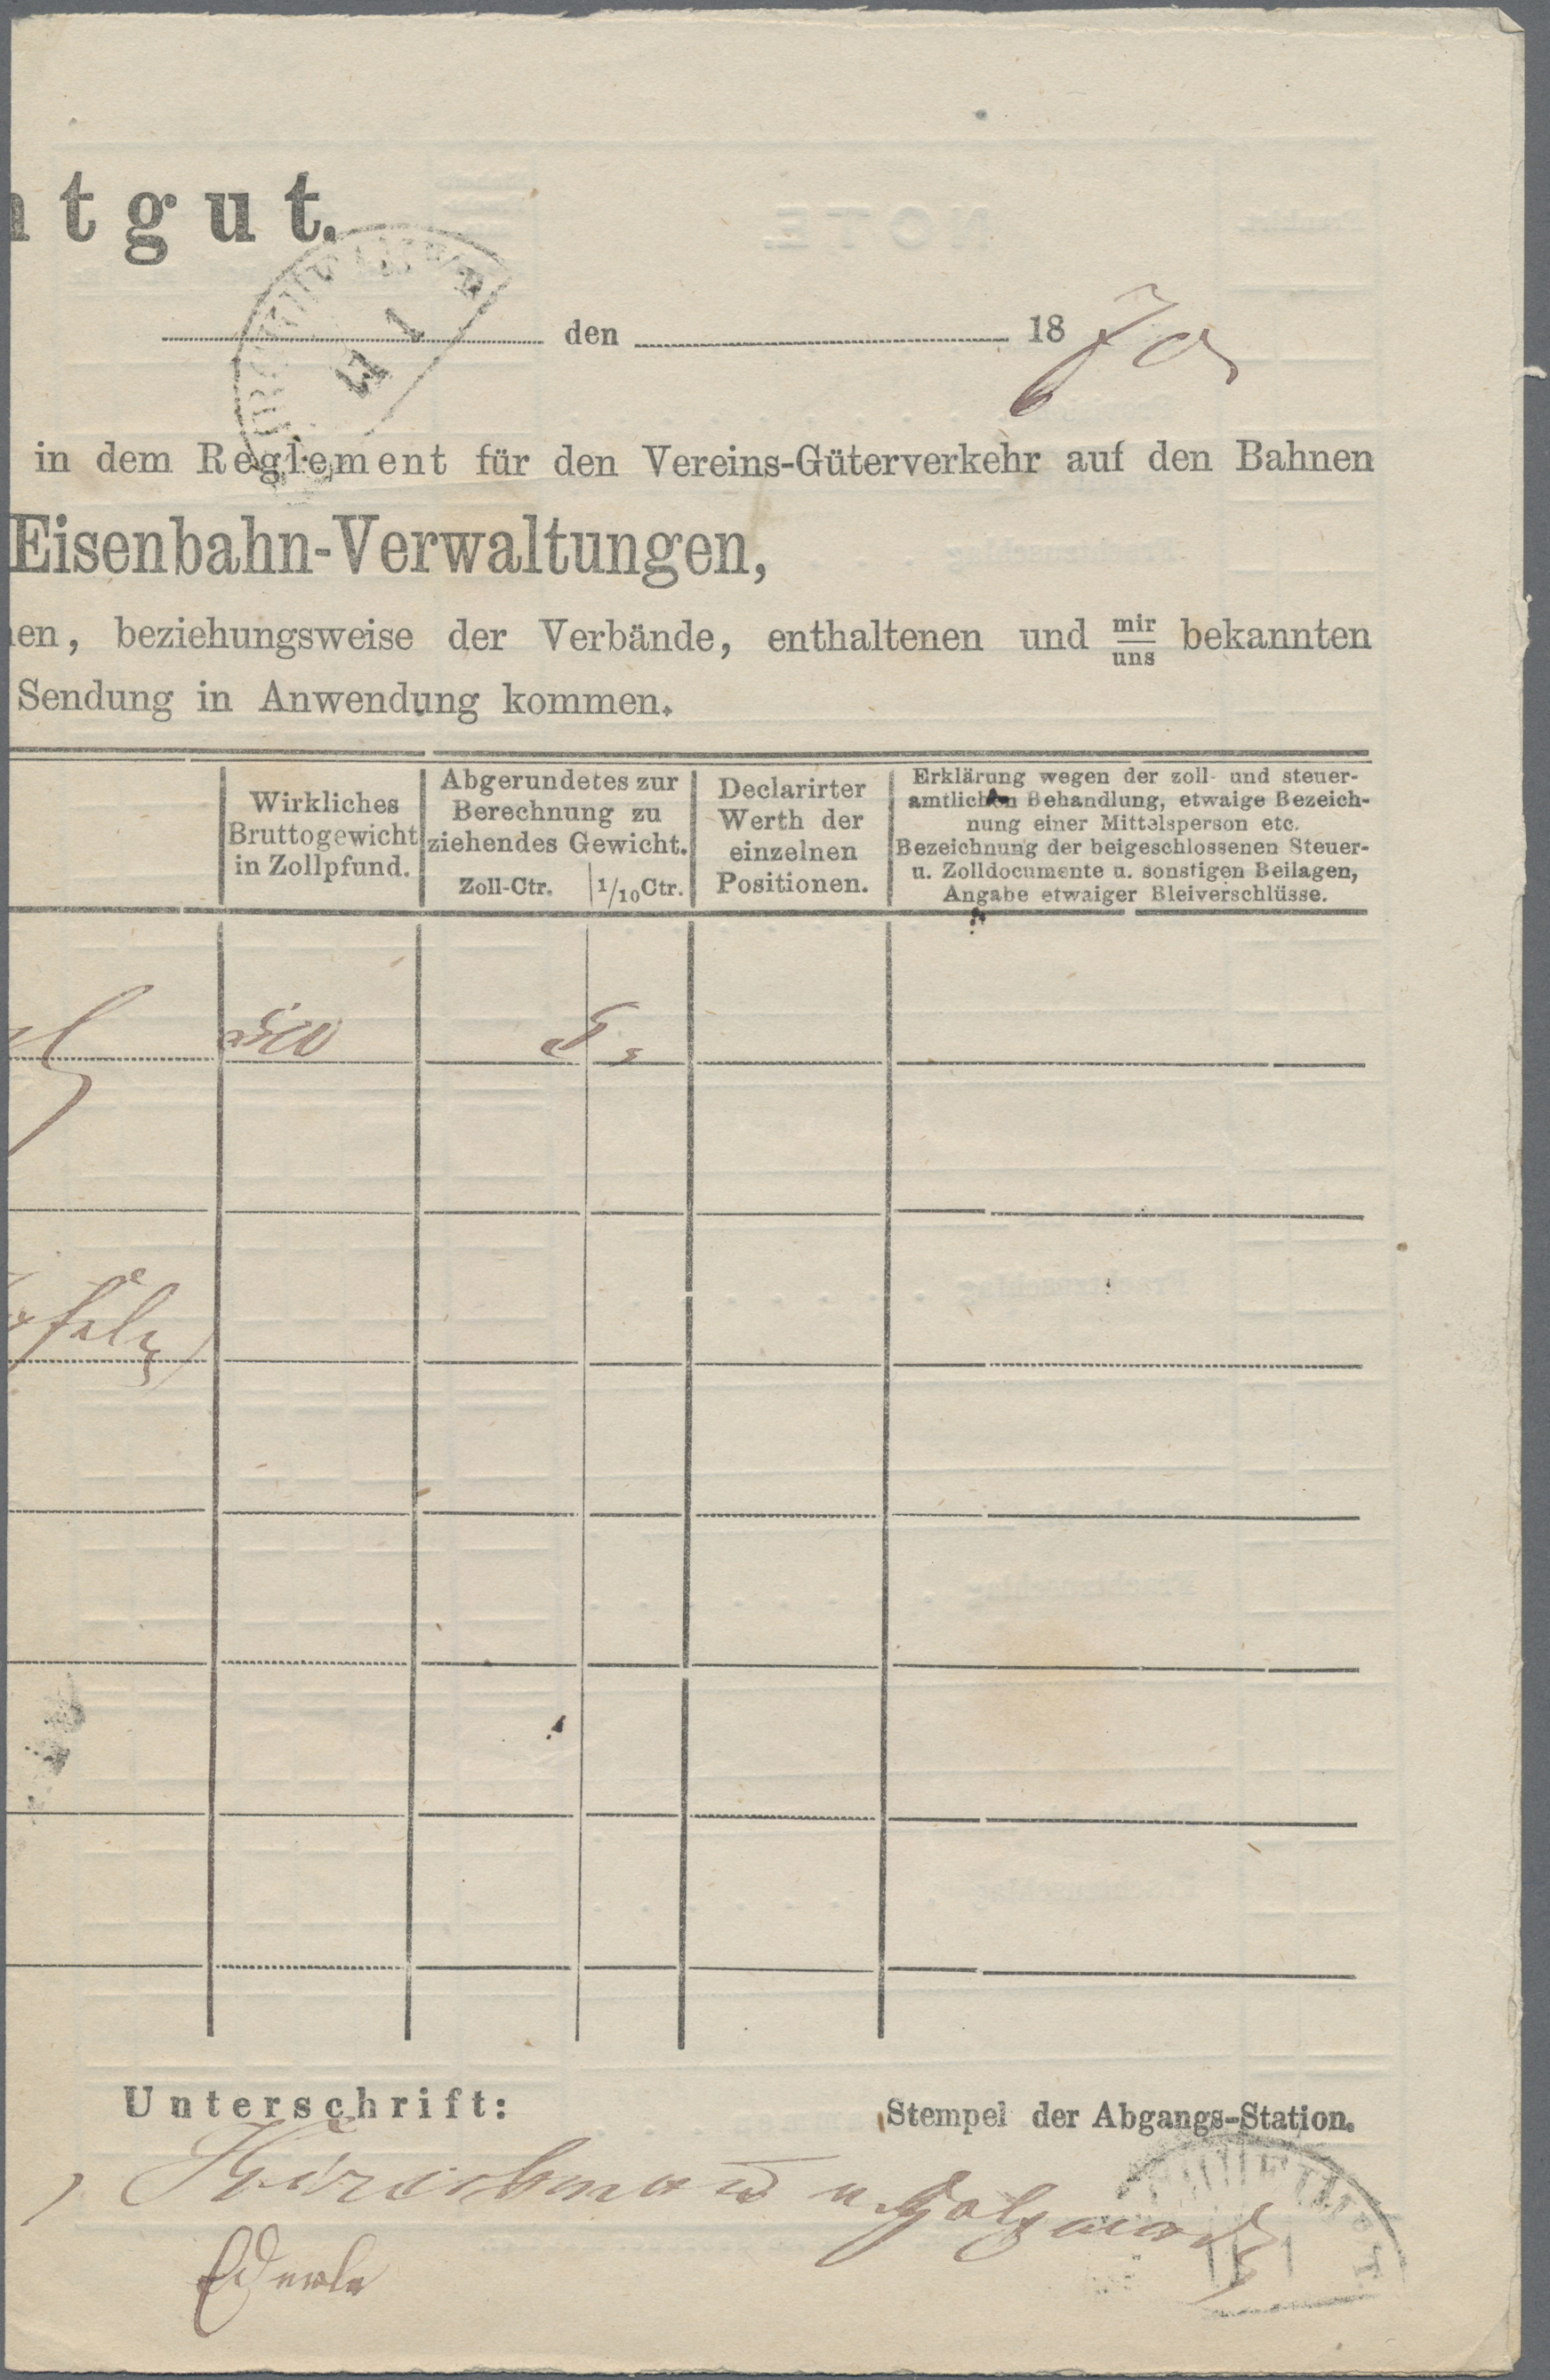 tgut.
den 1870
in dem Reglement für den Vereins-Güterverkehr auf den Bahnen
Eisenbahn-Verwaltungen,
en, beziehungsweise der Verbände, enthaltenen und mir/uns bekannten
Sendung in Anwendung kommen.
Wirkliches
Bruttogewicht
in Zollpfund.
Abgerundetes zur
Berechnung zu
ziehendes Gewicht.
Zoll-Ctr. 1/10 Ctr.
Declarirter
Werth der
einzelnen
Positionen.
Erklärung wegen der zoll- und steuer-
amtlichen Behandlung, etwaige Bezeich-
nung einer Mittelsperson etc.
Bezeichnung der beigeschlossenen Steuer-
u. Zolldocumente u. sonstigen Beilagen,
Angabe etwaiger Bleiverschlüsse.
Unterschrift:
Stempel der Abgangs-Station.